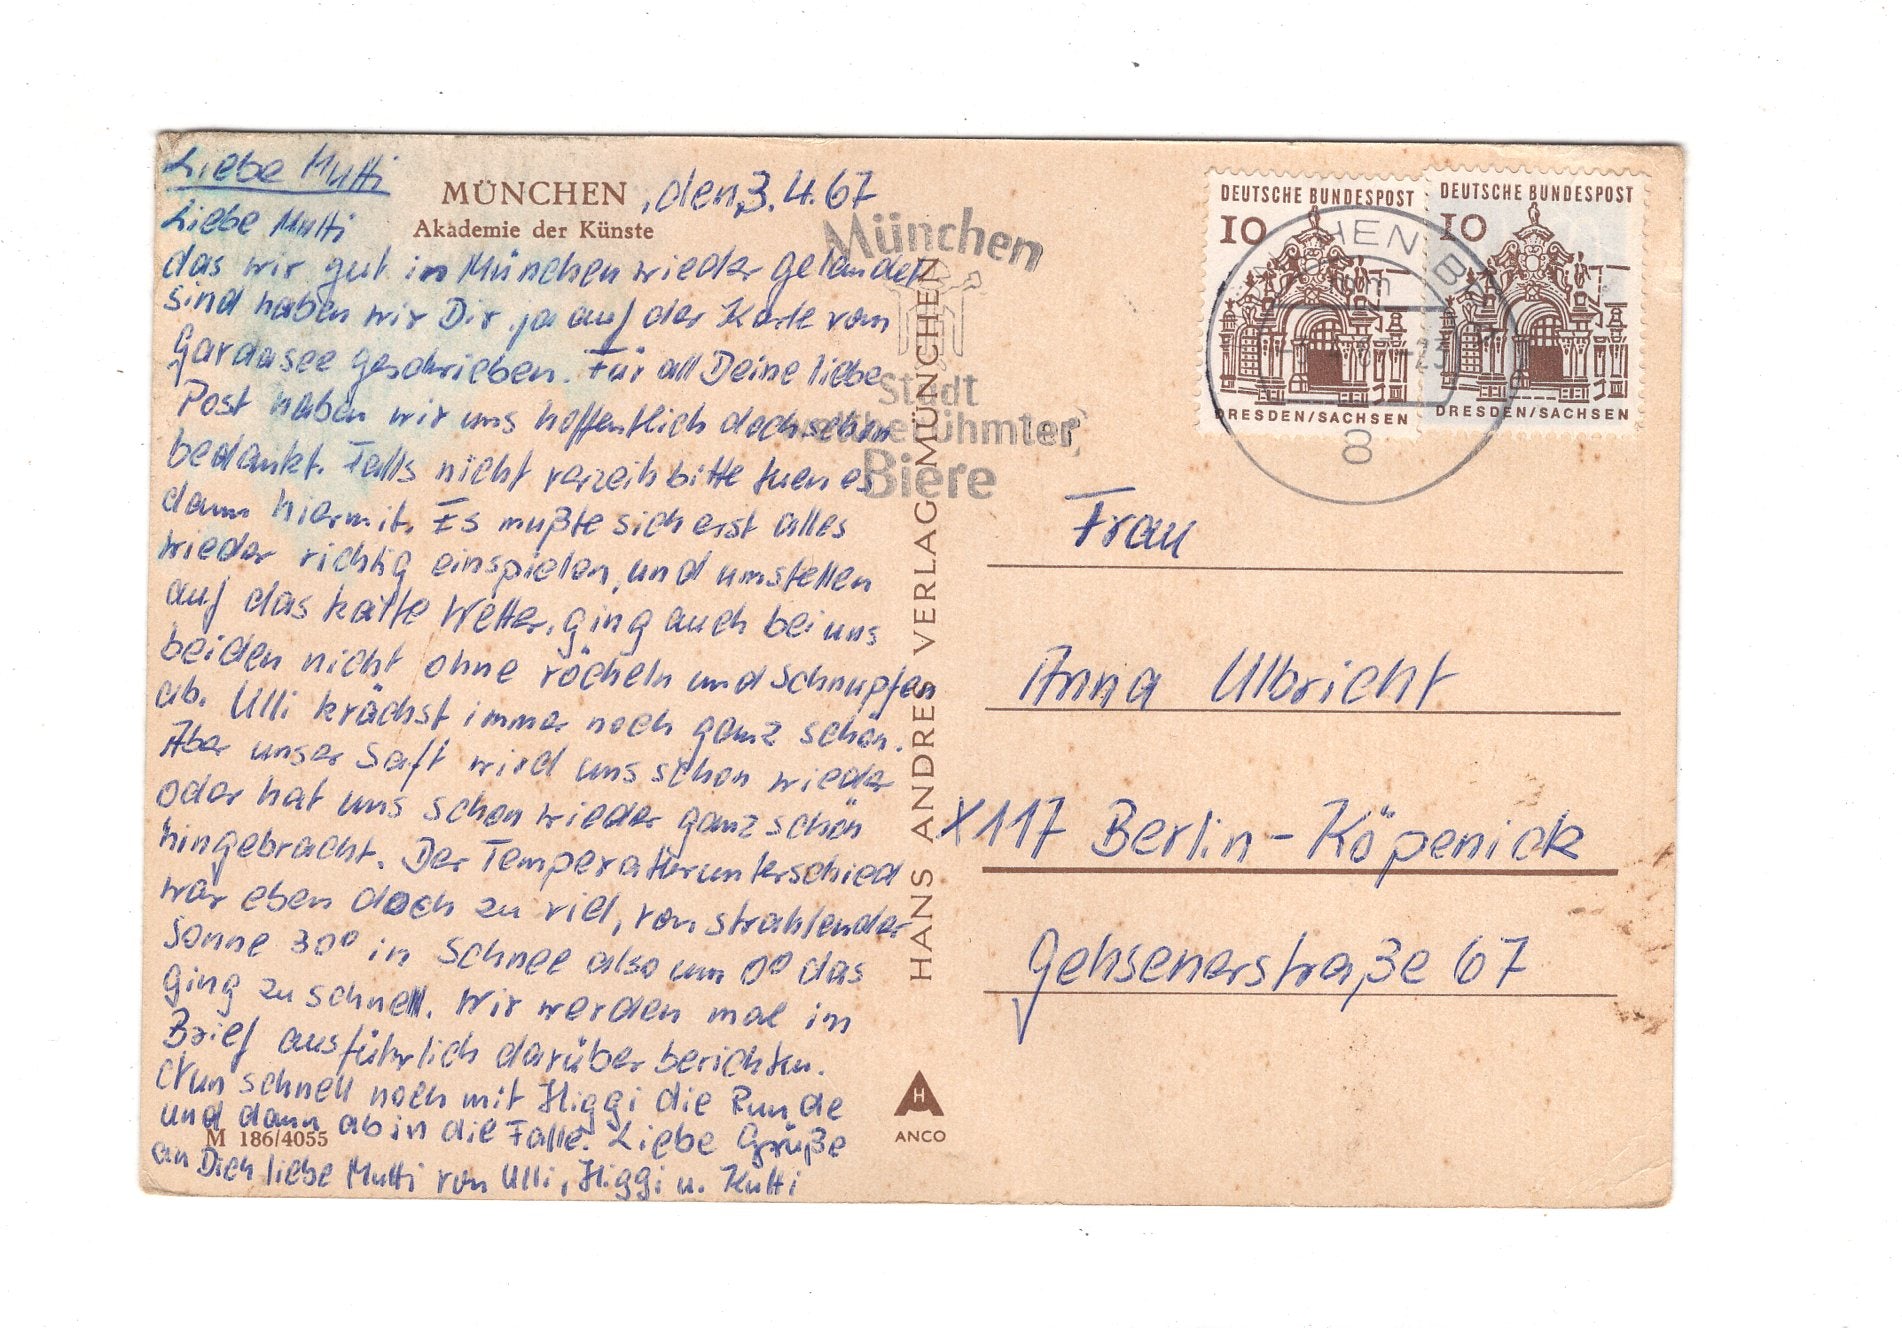 Liebe Mutti
MÜNCHEN, den, 3.4.67
Akademie der Künste
Liebe Mutti
das wir gut in München wieder gelandet
sind haben wir Dir ja auf der Karte vom
Gardasee geschrieben. Für all Deine liebe
Post haben wir uns hoffentlich doch schon
bedankt. Falls nicht verzeih bitte tuen es
dann hiermit. Es mußte sich erst alles
wieder richtig einspielen, und umstellen
auf das kalte Wetter, ging auch bei uns
beiden nicht ohne röcheln und Schnupfen
ab. Ulli krächst immer noch ganz schön.
Aber unser Saft wird uns schon wieder
oder hat uns schon wieder ganz schön
hingebracht. Der Temperatturunterschied
war eben doch zu viel, von strahlender
Sonne 30° in Schnee also um 0° das
ging zu schnell. Wir werden mal im
Brief ausführlich darüber berichten.
Nun schnell noch mit Higgi die Runde
und dann ab in die Falle. Liebe Grüße
an Dich liebe Mutti von Ulli, Higgi u. Kutti
M 186/4055
HANS ANDRES VERLAG MÜNCHEN
H
ANCO
München
Stadt
weltberühmter
Biere
DEUTSCHE BUNDESPOST
10
DRESDEN/SACHSEN
DEUTSCHE BUNDESPOST
10
DRESDEN/SACHSEN
8
Frau
Anna Ulbricht
X117 Berlin-Köpenick
Gehsenerstraße 67